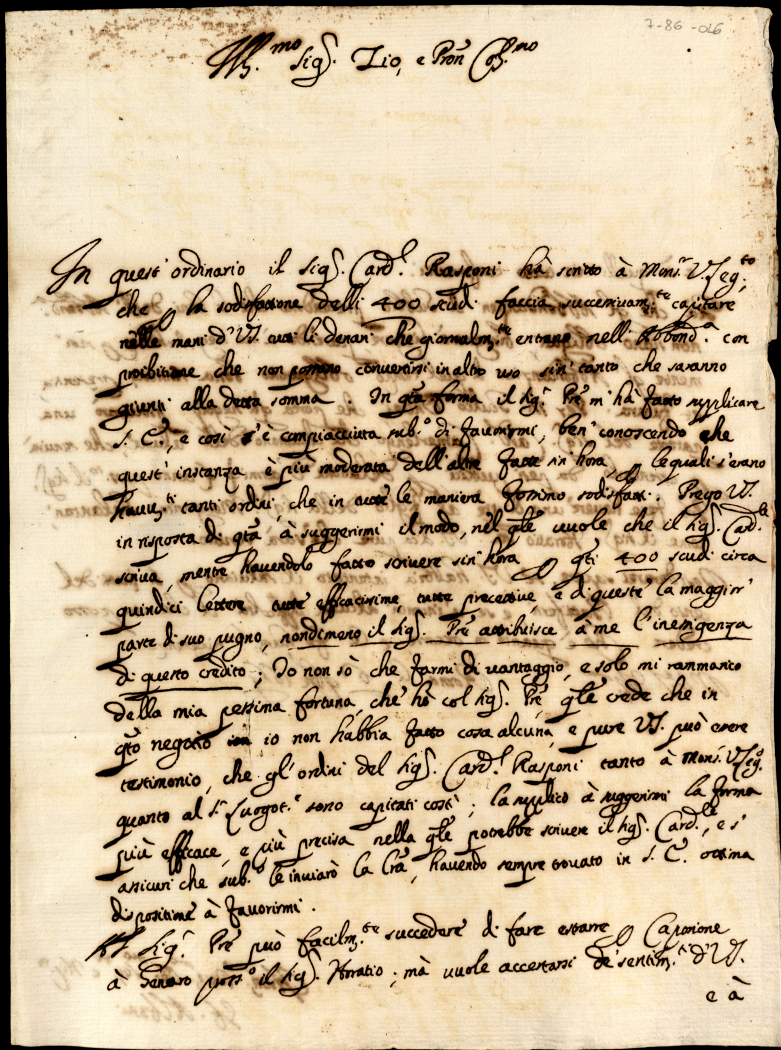 7-86-016
Ill.mo Sig.r Zio, e Pron Col.mo
In quest'ordinario il Sig.r Card.l Rasponi hà scritto à Mons.r V.Leg.to
che la sodisfattione delli 400 scudi faccia successivam.te capitare
nelle mani d'VS. tutti li denari che giornalm.te entrano nell'Abbond.a con
proibitione che non possino convertirsi in altro uso sin tanto che saranno
giunti alla detta somma. In q.ta forma il Sig.r Pre m'hà fatto supplicare
S. E., e così s'è compiacciuta sub.o di favorirmi, ben conoscendo che
quest'instanza è più moderata dell'altre fatte sin'hora, le quali s'erano
havu.ti tanti ordini, che in tutte le maniere fossino sodisfatti. Prego VS.
in risposta di q.ta à suggerirmi il modo, nel q.le vuole che il Sig.r Card.le
scriva, mentre havendolo fatto scrivere sin'hora q.ti 400 scudi circa
quindici lettere tutte efficacissime, tutte precettive, e di queste la maggior
parte di suo pugno, nondimeno il Sig.r Pre attribuisce à me l'inesigenza
di questo credito; Io non sò che farmi di vantaggio, e solo mi rammarico
della mia pessima fortuna, che hò col Sig.r Pre, q.le crede che in
q.to negotio io non habbia fatto cosa alcuna, e pure VS. può essere
testimonio, che gl'ordini del Sig.r Card.l Rasponi tanto à Mons.r V.Leg.o
quanto al S.r Luogot.e sono capitati costì; la supplico à suggerirmi la forma
più efficace, e più precisa nella q.le potrebbe scrivere il Sig.r Card.le, e s'
assicuri che sub.o le inviarò la l'ra, havendo sempre trovato in S. E. ottima
dispositione à favorirmi.
Al Sig.r Pre può facilm.te succedere di fare estarre Caporione
à Genaro pross.o il Sig.r Horatio; mà vuole accertarsi de' sentim.ti d'VS.
e à